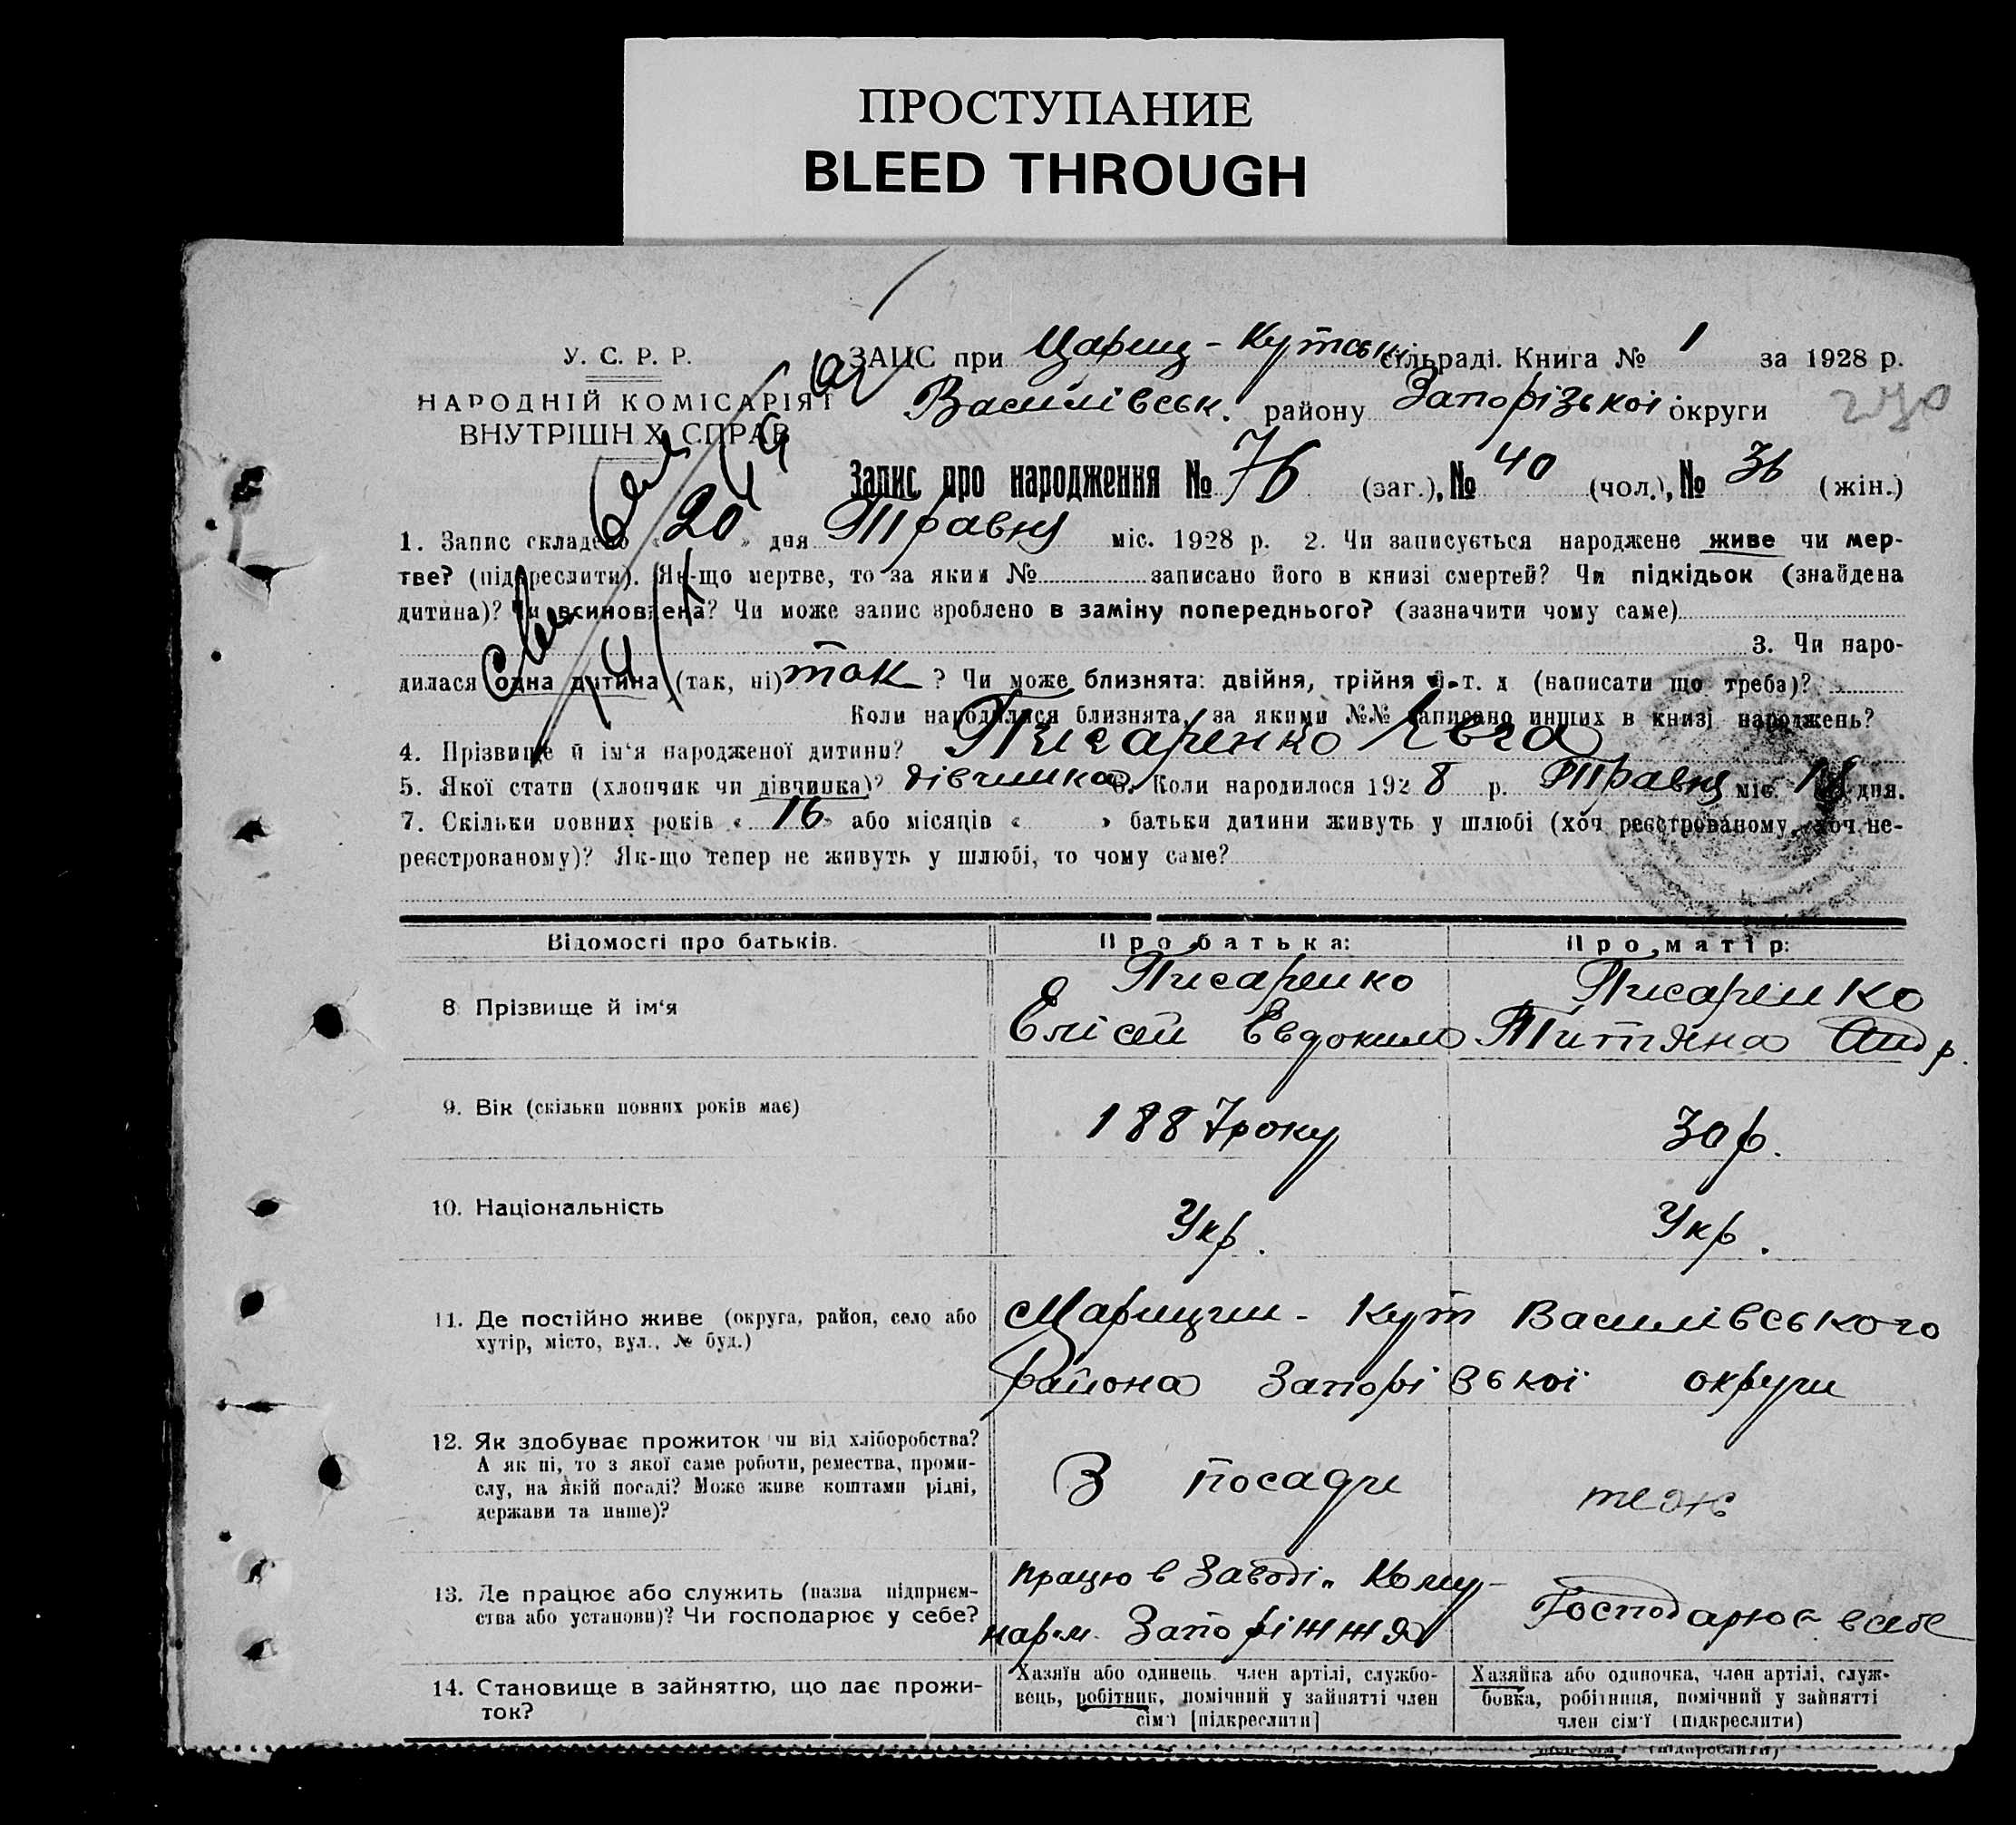 ПРОСТУПАНИЕ
BLEED THROUGH
У. С. Р. Р.
НАРОДНІЙ КОМІСАРІЯТ
ВНУТРІШН Х СПРАВ
ЗАЦС при Цариц-Кутськ. сільраді. Книга № 1 за 1928 р.
Василівськ. району Запорізької округи
270
Запис про народження № 76 (заг.), № 40 (чол.), № 36 (жін.)
1. Запис складено « 20 » дня Травня міс. 1928 р. 2. Чи записується народжене живе чи мер-
тве? (підкреслити). Як-що мертве, то за яким № записано його в книзі смертей? Чи підкідьок (знайдена
дитина)? Чи всиновлена? Чи може запис зроблено в заміну попереднього? (зазначити чому саме)
3. Чи наро-
дилася одна дитина (так, ні) так ? Чи може близнята: двійня, трійня й т. д (написати що треба)?
Коли народилися близнята, за якими №№ записано инших в книзі народжень?
4. Прізвище й ім'я народженої дитини? Писаренко Євга
5. Якої стати (хлопчик чи дівчинка)? дівчинка 6. Коли народилося 1928 р. Травня міс. 18 дня.
7. Скільки повних років « 16 » або місяців « » батьки дитини живуть у шлюбі (хоч реєстрованому, хоч не-
реєстрованому)? Як-що тепер не живуть у шлюбі, то чому саме?
Відомості про батьків. Про батька: Про матір:
8 Прізвище й ім'я Писаренко Елісей Евдоким Писаренко Титяна Андр.
9. Вік (скільки повних років має) 1887 року 30 р.
10. Національність Укр. Укр.
11. Де постійно живе (округа, район, село або
хутір, місто, вул., № буд.)
Марицин-Кут Василівського
Района Запорізької округи
12. Як здобуває прожиток чи від хліборобства?
А як ні, то з якої саме роботи, ремества, проми-
слу, на якій посаді? Може живе коштами рідні,
держави та инше)?
З посади теж
13. Де працює або служить (назва підприєм-
ства або установи)? Чи господарює у себе?
працю в Заводі „Кому-
нар" м. Запоріжжя
Господарює в себе
14. Становище в зайняттю, що дає прожи-
ток?
Хазяїн або одинець член артілі, службо-
вець, робітник, помічний у зайнятті член
сім'ї [підкреслити]
Хазяйка або одиночка, член артілі, служ-
бовка, робітниця, помічний у зайнятті
член сім'ї (підкреслити)